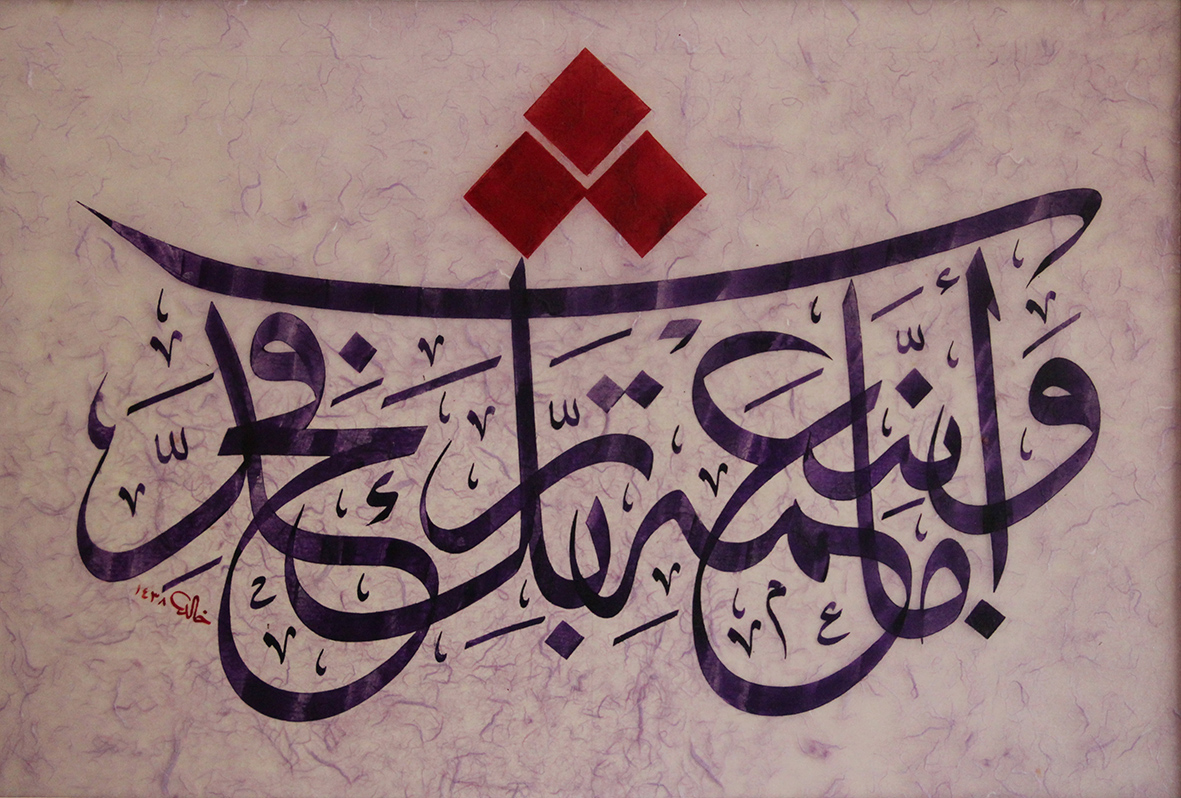 وَأَمَّا بِنِعْمَةِ رَبِّكَ فَحَدِّثْ
خالد ١٤٣٨